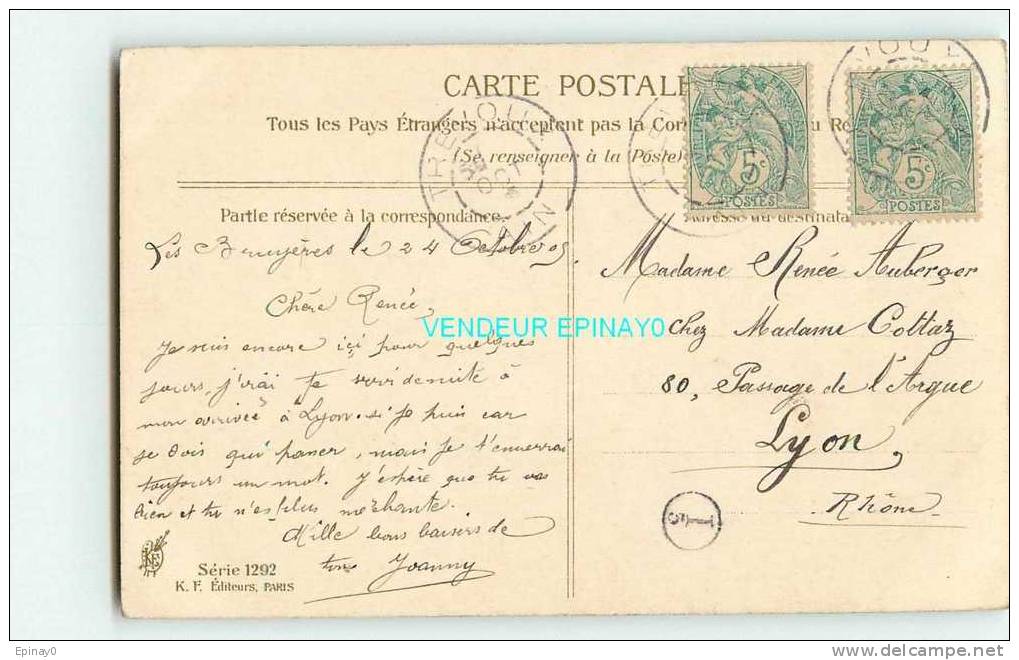 CARTE POSTALE
Tous les Pays Étrangers n'acceptent pas la Cor
(Se renseigner à la Poste)
TREVOUX
AIN
5c
POSTES
5c
POSTES
Partie réservée à la correspondance.
Adresse du destinata
Les Bruyères le 24 Octobre 05.
Chère Renée,
Je suis encore içi pour quelques
jours, j'irai te voir de suite à
mon arrivée à Lyon. si je puis car
je dois qui passer, mais je t'enverrai
toujours un mot. J'éspère que tu vas
bien et tu n'es plus méchante.
Mille bons baisers de
ton Joanny
Madame Renée Auberger
chez Madame Cottaz
80, Passage de l'Argue
Lyon,
Rhône
VENDEUR EPINAY0
Série 1292
K. F. Éditeurs, PARIS
Epinay0
delcampe.net